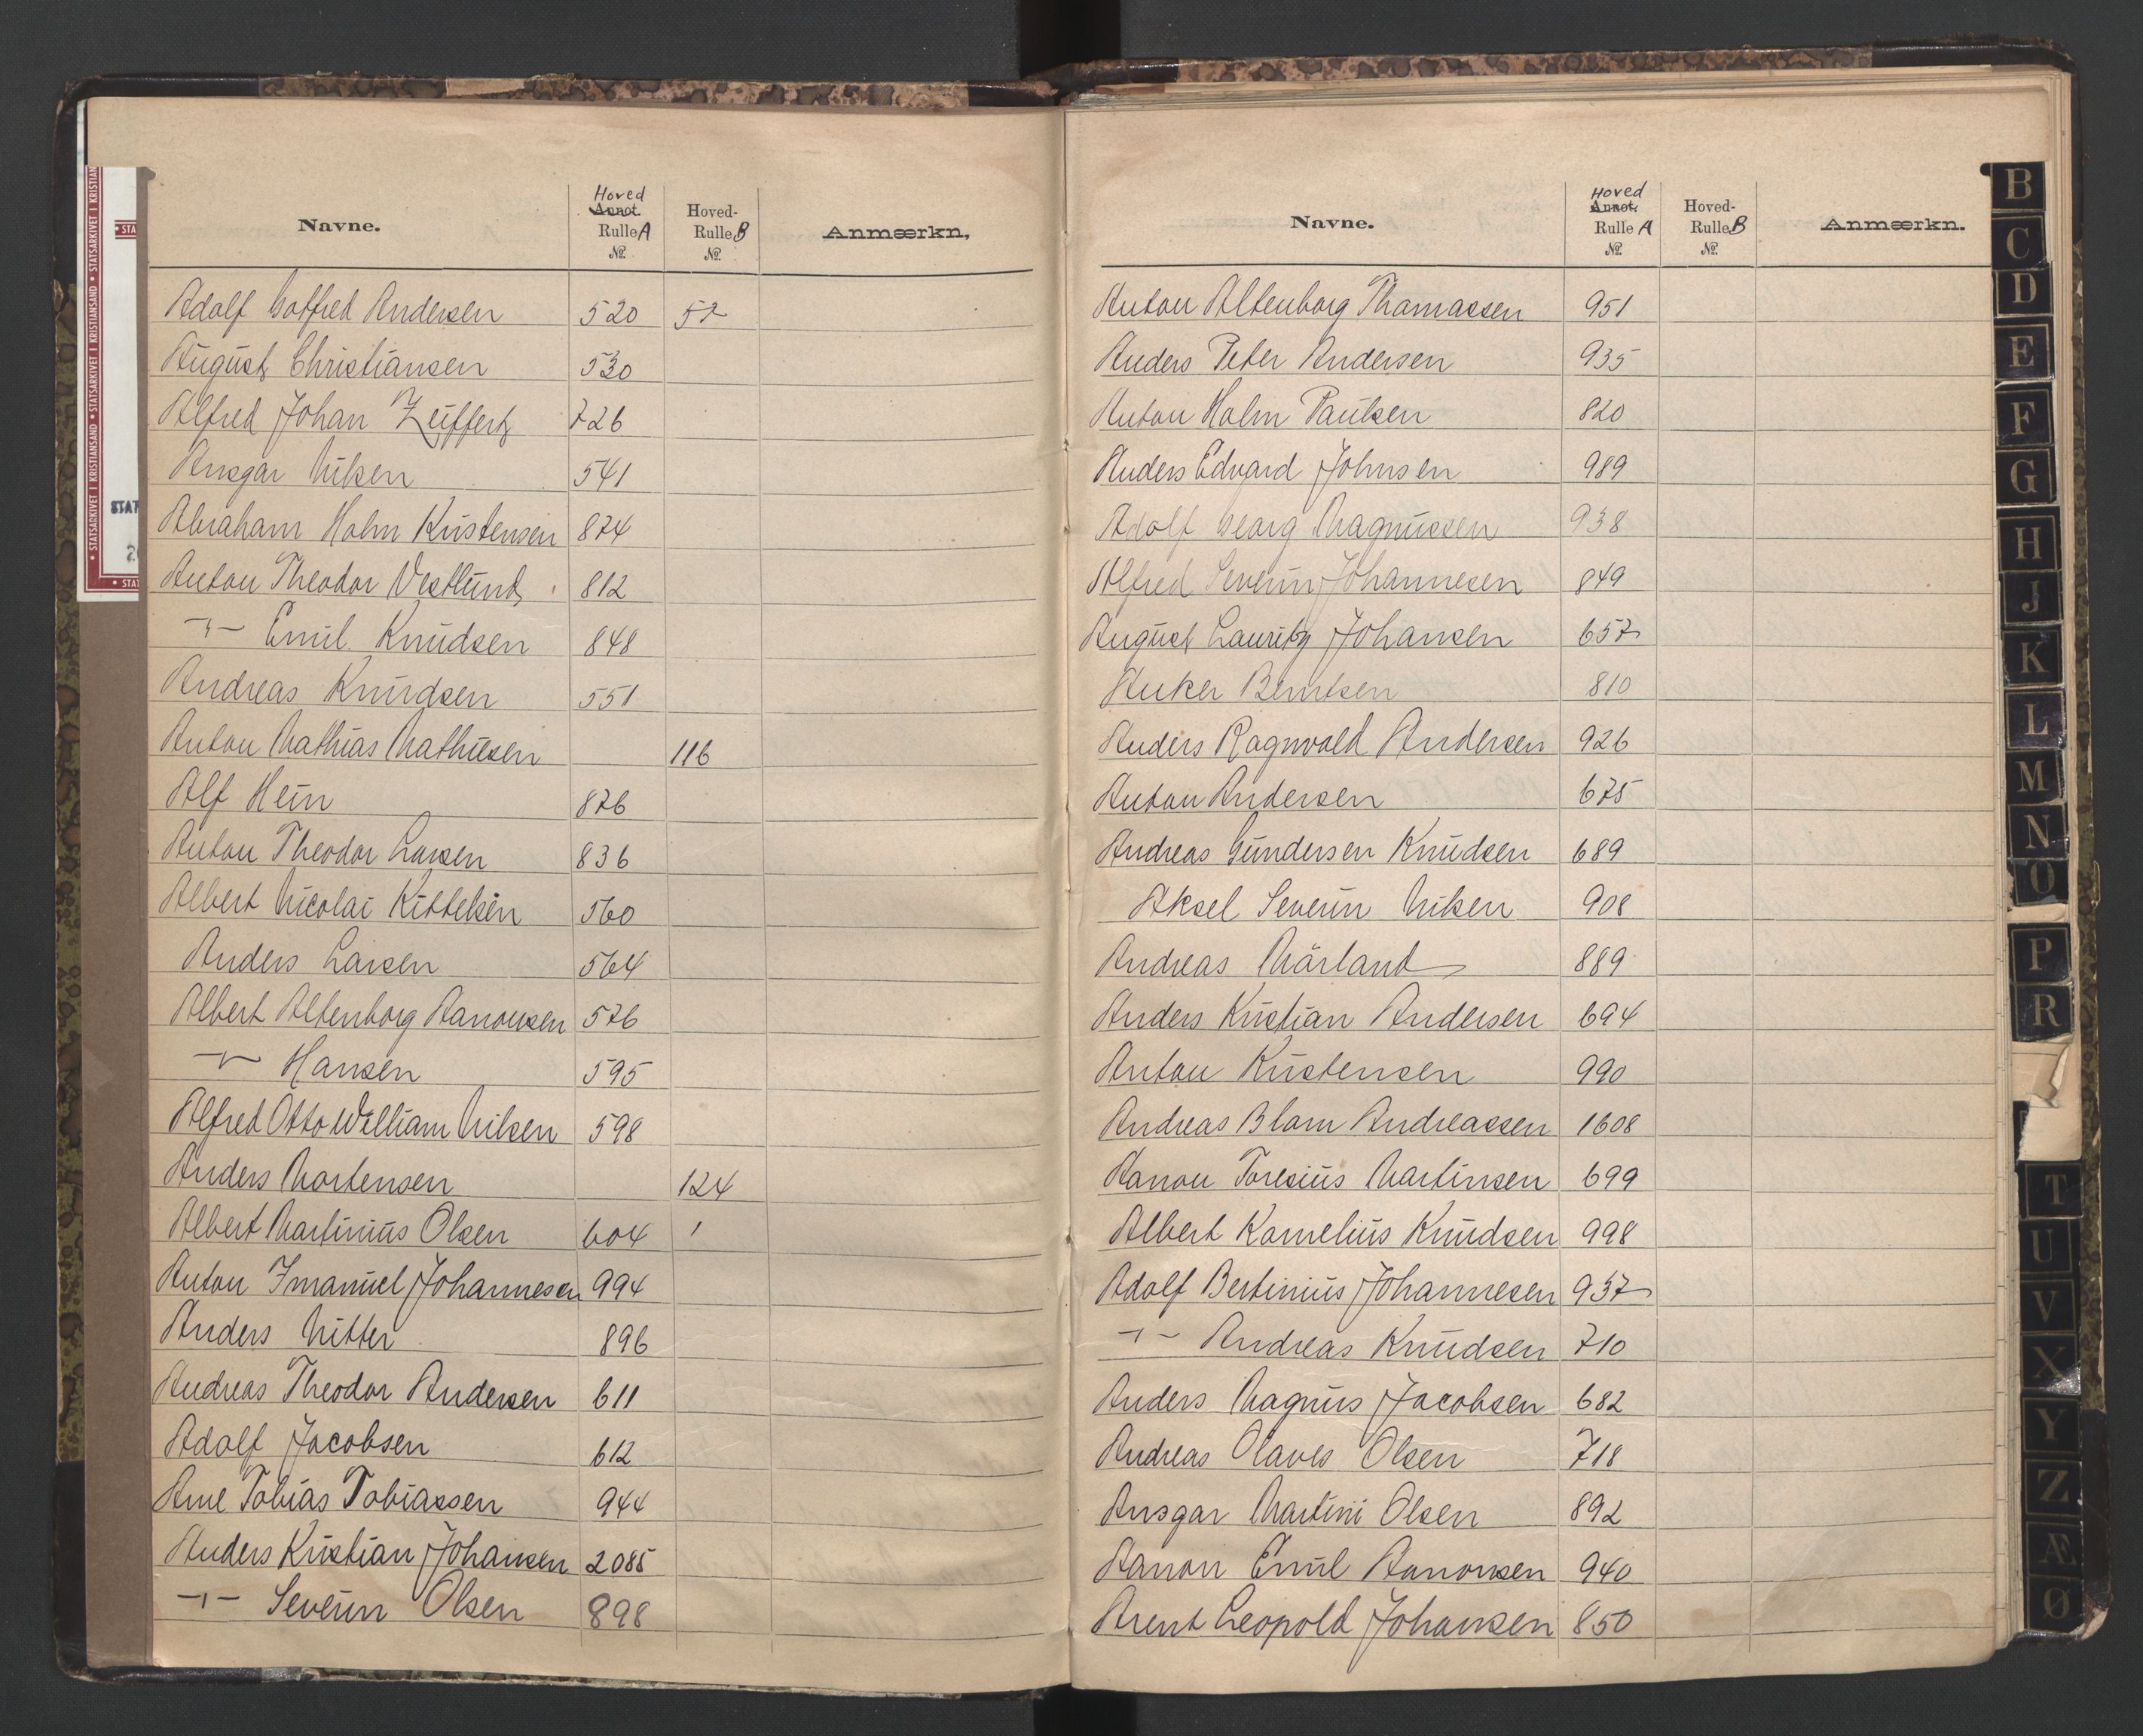 Navne. Hoved Annot. Rulle A No. Hoved-Rulle B No. Anmærkn.
Adolf Gotfred Andersen 520 57
August Christiansen 530
Alfred Johan Zeiffert 726
Ansgar Nilsen 541
Abraham Holm Kristensen 874
Anton Theodor Vestlund 812
-"- Emil Knudsen 848
Andreas Knudsen 551
Anton Mathias Mathisen 116
Alf Hein 876
Anton Theodor Larsen 836
Albert Nicolai Kittelsen 560
Anders Larsen 564
Albert Altenborg Aanonsen 576
-"- Hansen 595
Alfred Otto William Nilsen 598
Anders Mortensen 124
Albert Martinius Olsen 604
Anton Imanuel Johannesen 994
Anders Nitter 896
Andreas Theodor Andersen 611
Adolf Jacobsen 612
Arne Tobias Tobiassen 944
Anders Kristian Johansen 2085
-"- Severin Olsen 898
Navne. Hoved Annot. Rulle A No. Hoved-Rulle B No. Anmærkn.
Anton Altenborg Thomassen 951
Anders Peter Andersen 935
Anton Holm Paulsen 820
Anders Edvard Johnsen 989
Adolf Georg Magnussen 938
Alfred Severin Johannesen 849
August Lauritz Johansen 657
Anker Berntsen 810
Anders Ragnvald Andersen 926
Anton Andersen 675
Andreas Gundersen Knudsen 689
Aksel Severin Nilsen 908
Andreas Mårland 889
Anders Kristian Andersen 694
Anton Kristensen 990
Andreas Blom Andreassen 1608
Aanon Toresius Martinsen 699
Albert Kornelius Knudsen 998
Adolf Bertinius Johannesen 937
-"- Andreas Knudsen 710
Anders Magnus Jacobsen 682
Andreas Olaves Olsen 718
Ansgar Martini Olsen 892
Aanon Emil Aanonsen 940
Arent Leopold Johansen 850
B
C
D
E
F
G
H
J
K
L
M
N
O
P
R
T
U
V
X
Y
Z
Æ
Ø
STATSARKIVET I KRISTIANSAND